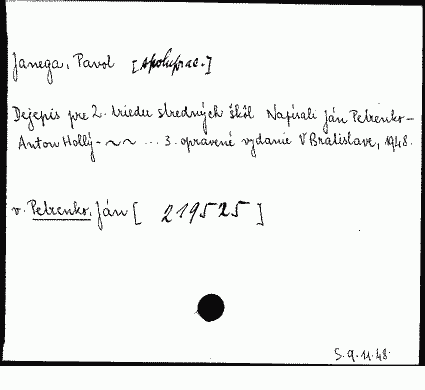 Janega, Pavol [spoluprac.]
Dejepis pre 2. triedu stredných škôl Napísali Ján Petrenko-
Anton Hollý - ~ ~ ... 3. opravené vydanie V Bratislave, 1948.
v. Petrenko, Ján [ 219525 ]
S. 9. 11. 48